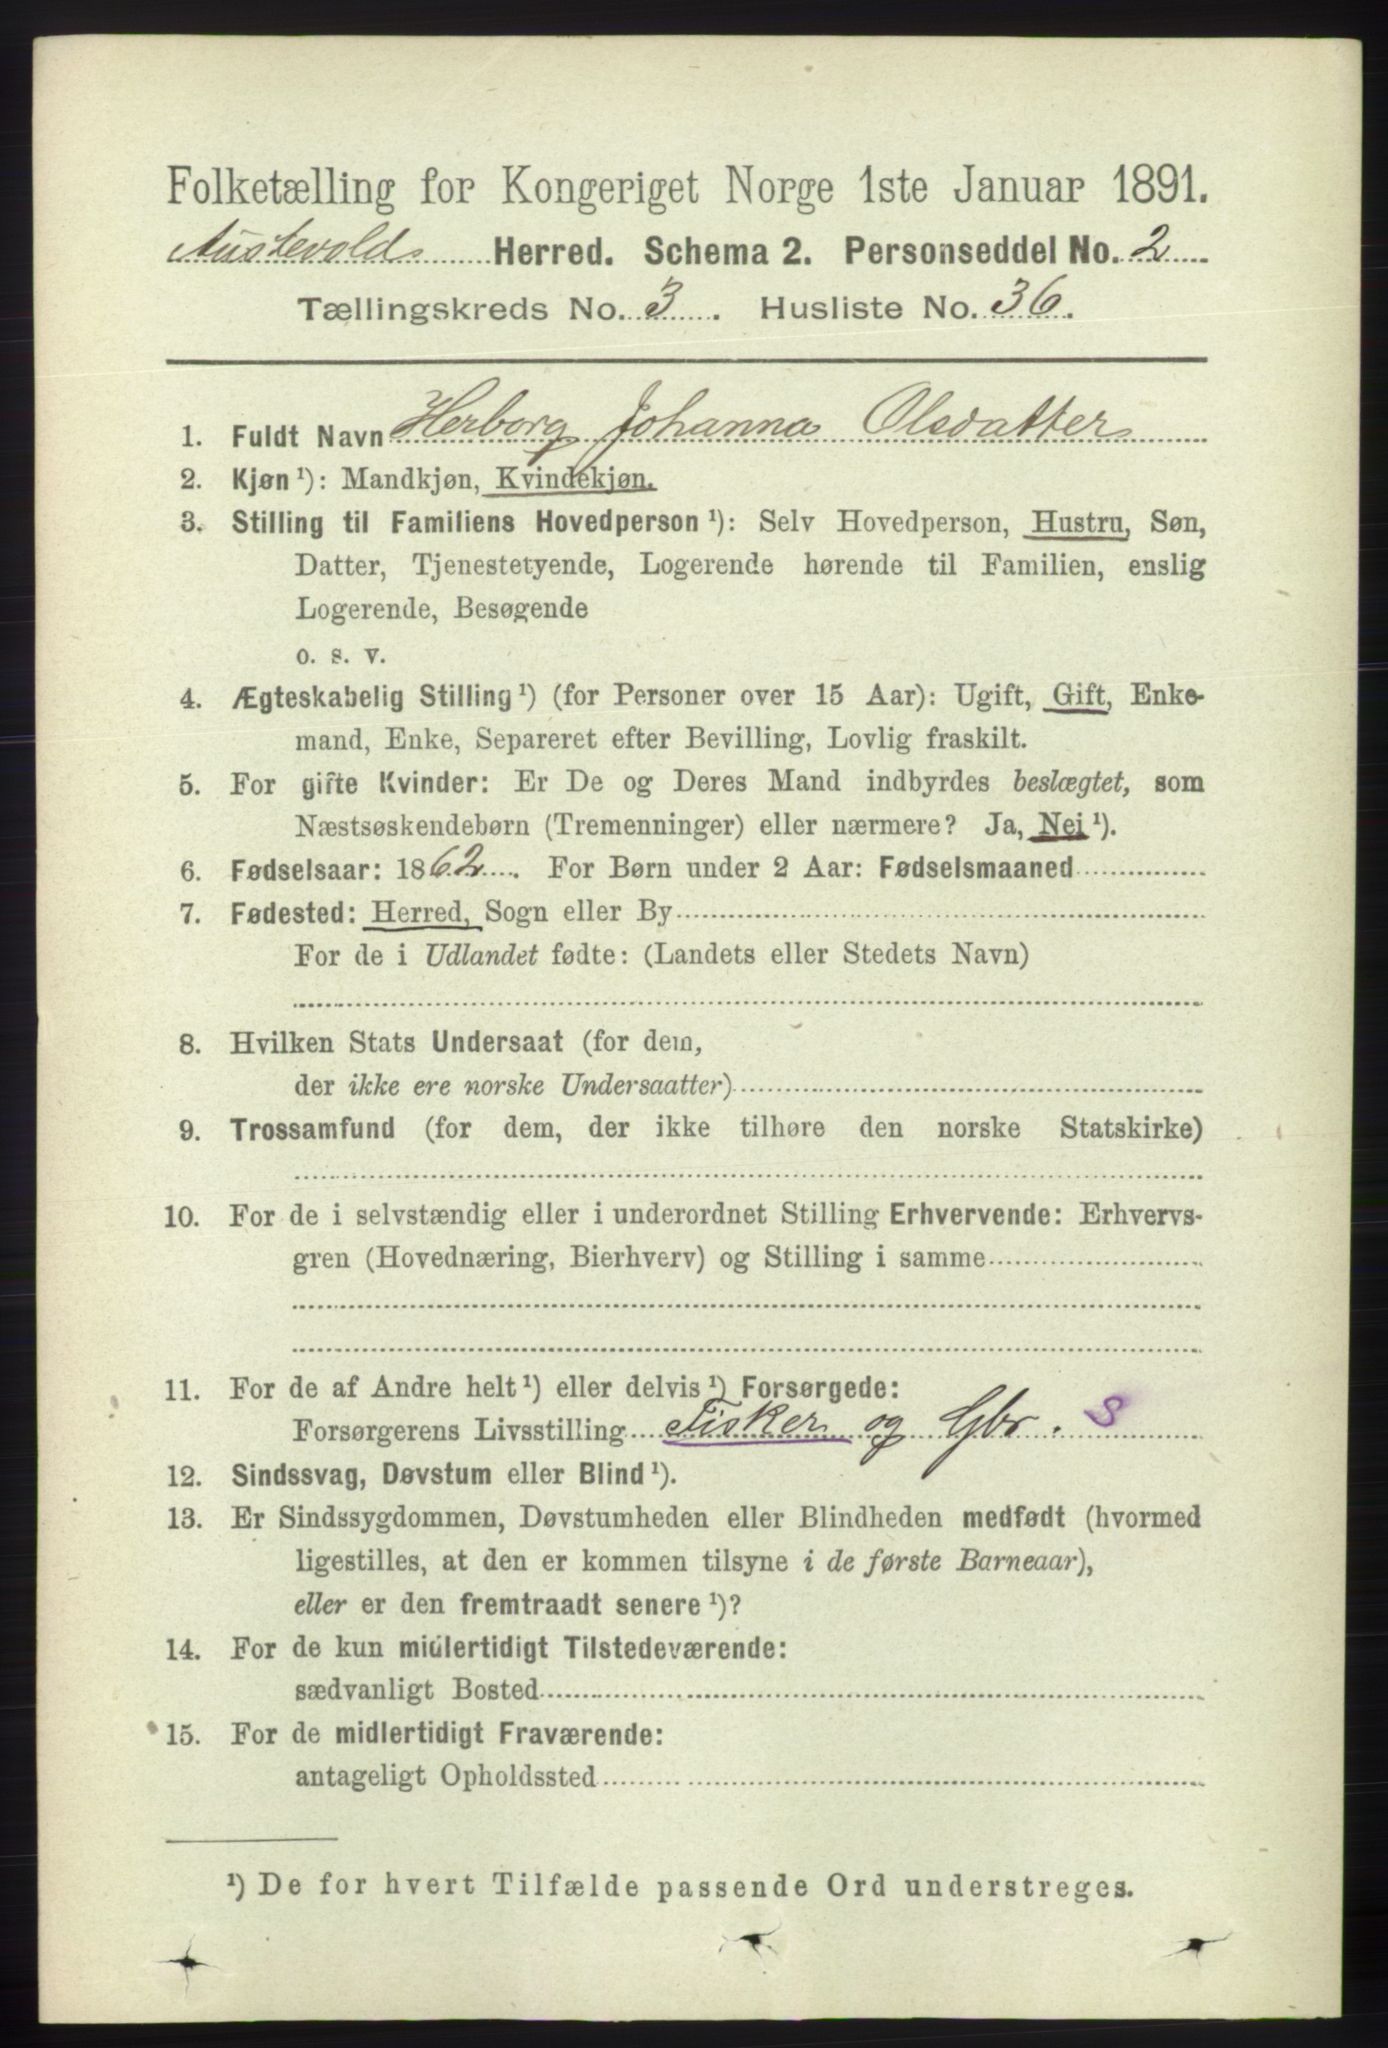 Folketælling for Kongeriget Norge 1ste Januar 1891.
Austevolds Herred. Schema 2. Personseddel No. 2
Tællingskreds No. 3. Husliste No. 36.
1. Fuldt Navn Herborg Johanna Olsdatter
2. Kjøn ¹): Mandkjøn, Kvindekjøn.
3. Stilling til Familiens Hovedperson ¹): Selv Hovedperson, Hustru, Søn,
Datter, Tjenestetyende, Logerende hørende til Familien, enslig
Logerende, Besøgende
o. s. v.
4. Ægteskabelig Stilling ¹) (for Personer over 15 Aar): Ugift, Gift, Enke-
mand, Enke, Separeret efter Bevilling, Lovlig fraskilt.
5. For gifte Kvinder: Er De og Deres Mand indbyrdes beslægtet, som
Næstsøskendebørn (Tremenninger) eller nærmere? Ja, Nei ¹).
6. Fødselsaar: 1862. For Børn under 2 Aar: Fødselsmaaned
7. Fødested: Herred, Sogn eller By
For de i Udlandet fødte: (Landets eller Stedets Navn)
8. Hvilken Stats Undersaat (for dem,
der ikke ere norske Undersaatter)
9. Trossamfund (for dem, der ikke tilhøre den norske Statskirke)
10. For de i selvstændig eller i underordnet Stilling Erhvervende: Erhvervs-
gren (Hovednæring, Bierhverv) og Stilling i samme
11. For de af Andre helt ¹) eller delvis ¹) Forsørgede:
Forsørgerens Livsstilling Fisker og Gbr. S
12. Sindssvag, Døvstum eller Blind ¹).
13. Er Sindssygdommen, Døvstumheden eller Blindheden medfødt (hvormed
ligestilles, at den er kommen tilsyne i de første Barneaar),
eller er den fremtraadt senere ¹)?
14. For de kun midlertidigt Tilstedeværende:
sædvanligt Bosted
15. For de midlertidigt Fraværende:
antageligt Opholdssted
¹) De for hvert Tilfælde passende Ord understreges.